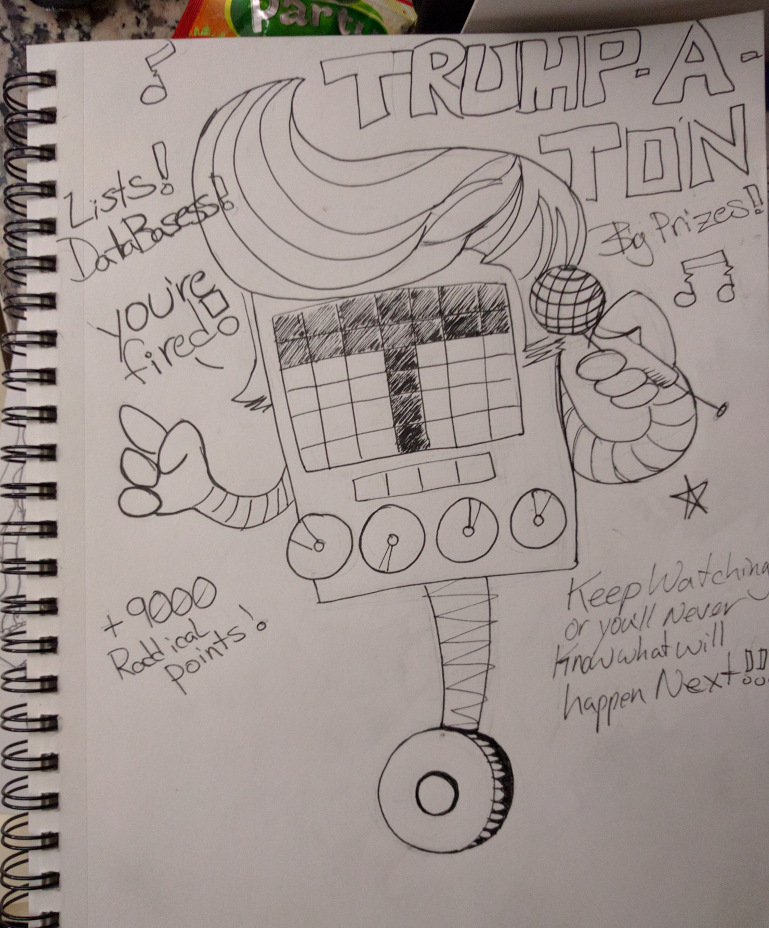 Party
TRUMP-A-
TON
Lists!
DataBasess!
Big Prizes!!
you're
fired!!
T
+9000
Raddical
points!
Keep Watching
or you'll Never
Know what will
happen Next!!